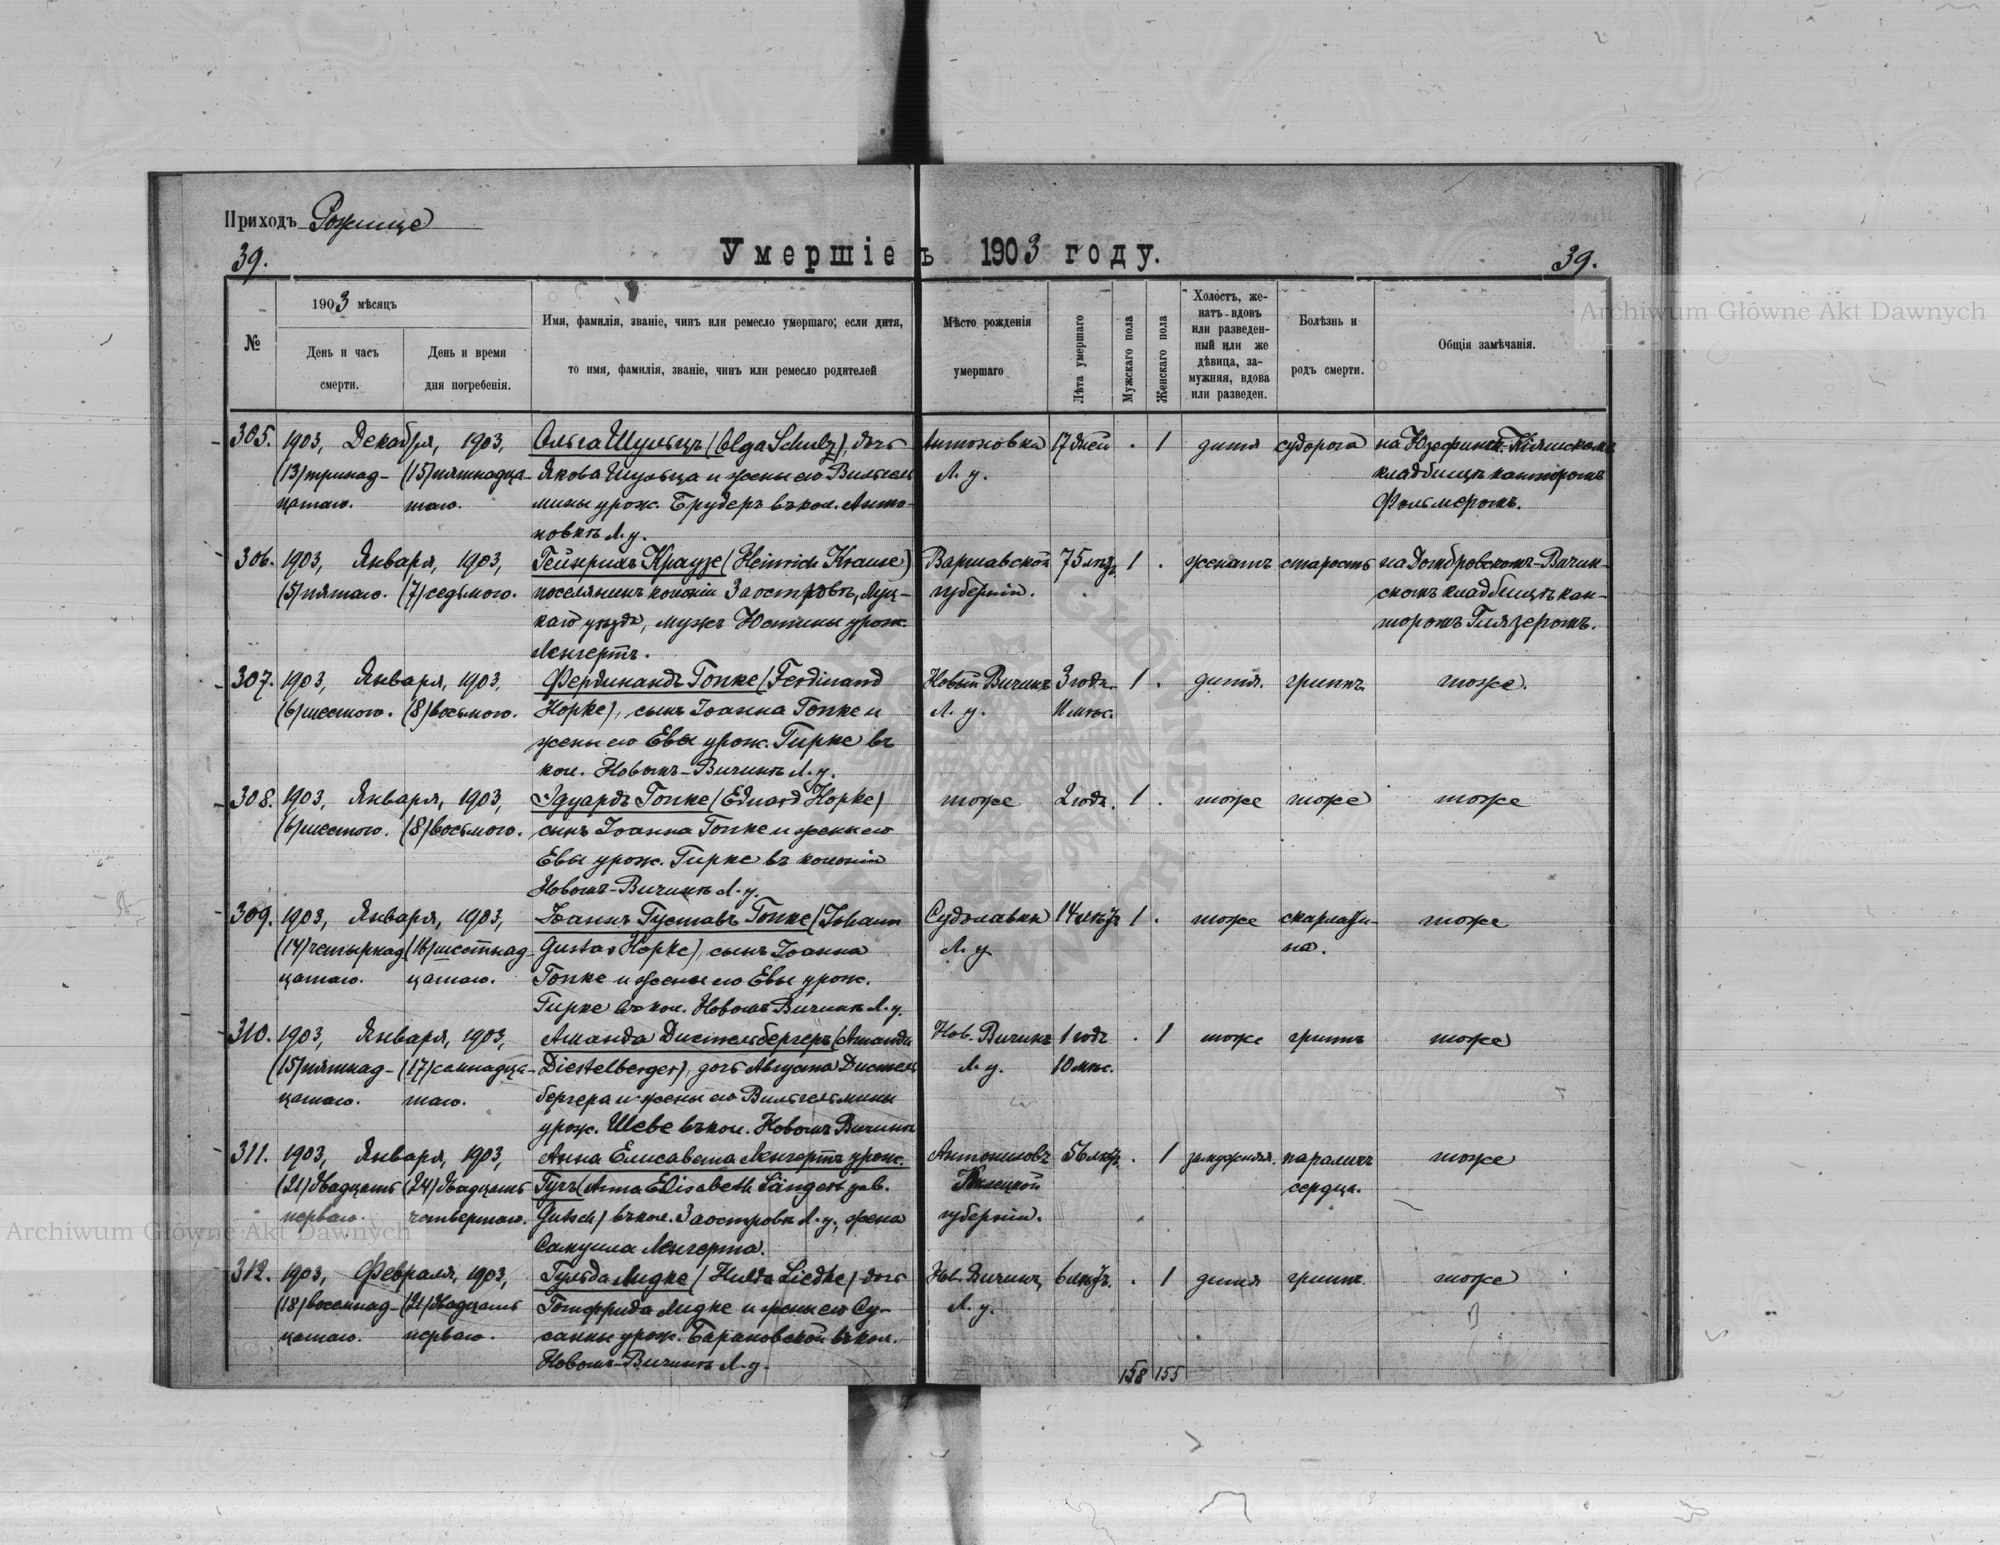 Приходъ Рожище
39.
Умершіе въ 1903 году.
39.
№
1903 мѣсяцъ
День и часъ
смерти.
День и время
дня погребенія.
Имя, фамилія, званіе, чинъ или ремесло умершаго; если дитя,
то имя, фамилія, званіе, чинъ или ремесло родителей
Мѣсто рожденія
умершаго
Лѣта умершаго
Мужскаго пола
Женскаго пола
Холостъ, же-
натъ-вдовъ
или разведен-
ный или же
дѣвица, за-
мужняя, вдова
или разведен.
Болѣзнь и
родъ смерти.
Общія замѣчанія.
305. 1903, Декабря, 1903, Ольга Шульцъ (Olga Schulz), дочь Антоновка 17 дней . 1 дитя судорога на Юзефинск.
(13) тринад- (15) пятнадца- Якова Шульца и жены его Вильгель Л. у. кладбищѣ канторомъ
цатаго. таго. мины урож. Брудеръ въ кол. Анто- Фольмеромъ.
новкѣ Л. у.
306. 1903, Января, 1903, Гейнрихъ Краузе (Heinrich Krause) Варшавской 75 лѣтъ 1 . женатъ старость на Домбровскомъ-Вичин-
(5) пятаго. (7) седьмого. поселянинъ колоніи Заостровъ, Луц- губерніи. скомъ кладбищѣ кан-
каго уѣзда, мужъ Юстины урож. торомъ Глязеромъ.
Ленгертъ.
307. 1903, Января, 1903, Фердинандъ Гопке (Ferdinand Новый Вичинъ 3 года 1 . дитя. гриппъ тоже.
(6) шестого. (8) восьмого. Hopke), сынъ Іоанна Гопке и Л. у. 11 мѣс.
жены его Евы урож. Гирке въ
кол. Новомъ-Вичинѣ Л. у.
308. 1903, Января, 1903, Эдуардъ Гопке (Eduard Hopke) тоже 2 года. 1 . тоже тоже тоже
(6) шестого. (8) восьмого. сынъ Іоанна Гопке и жены его
Евы урож. Гирке въ колоніи
Новомъ-Вичинѣ Л. у.
309. 1903, Января, 1903, Іоаннъ Густавъ Гопке (Johann 14 лѣтъ 1 . тоже скарлати- тоже
(14) четырнад (16) шестнад- Gustav Hopke), сынъ Іоанна Л. у. на.
цатаго. цатаго. Гопке и жены его Евы урож.
Гирке въ кол. Новомъ Вичинѣ Л. у.
310. 1903, Января, 1903, Аманда Дистельбергеръ (Amanda Нов. Вичинъ 1 годъ . 1 тоже гриппъ тоже
(15) пятнад- (17) семнадца- Diestelberger), дочь Августа Дистель Л. у. 10 мѣс.
цатаго. таго. бергера и жены его Вильгельмины
урож. Шеве въ кол. Новомъ Вичинѣ
311. 1903, Января, 1903, Анна Елисавета Ленгертъ урож. 56 лѣтъ . 1 замужняя. параличъ тоже
(21) двадцать (24) двадцать Гучъ (Anna Elisabeth Längert geb. Кѣлецкой сердца.
перваго. четвертаго. Gutsch) въ кол. Заостровѣ Л. у., жена губерніи.
Самуила Ленгерта.
312. 1903, Февраля, 1903, Гульда Лидке (Hulda Liedke) дочь Нов. Вичинъ, 6 лѣтъ . 1 дитя гриппъ. тоже
(18) восемнад- (21) двадцать Готфрида Лидке и жены его Су- Л. у.
цатаго. перваго. санны урож. Барановской въ кол.
Новомъ-Вичинѣ Л. у.
158 155
Archiwum Główne Akt Dawnych
Archiwum Główne Akt Dawnych